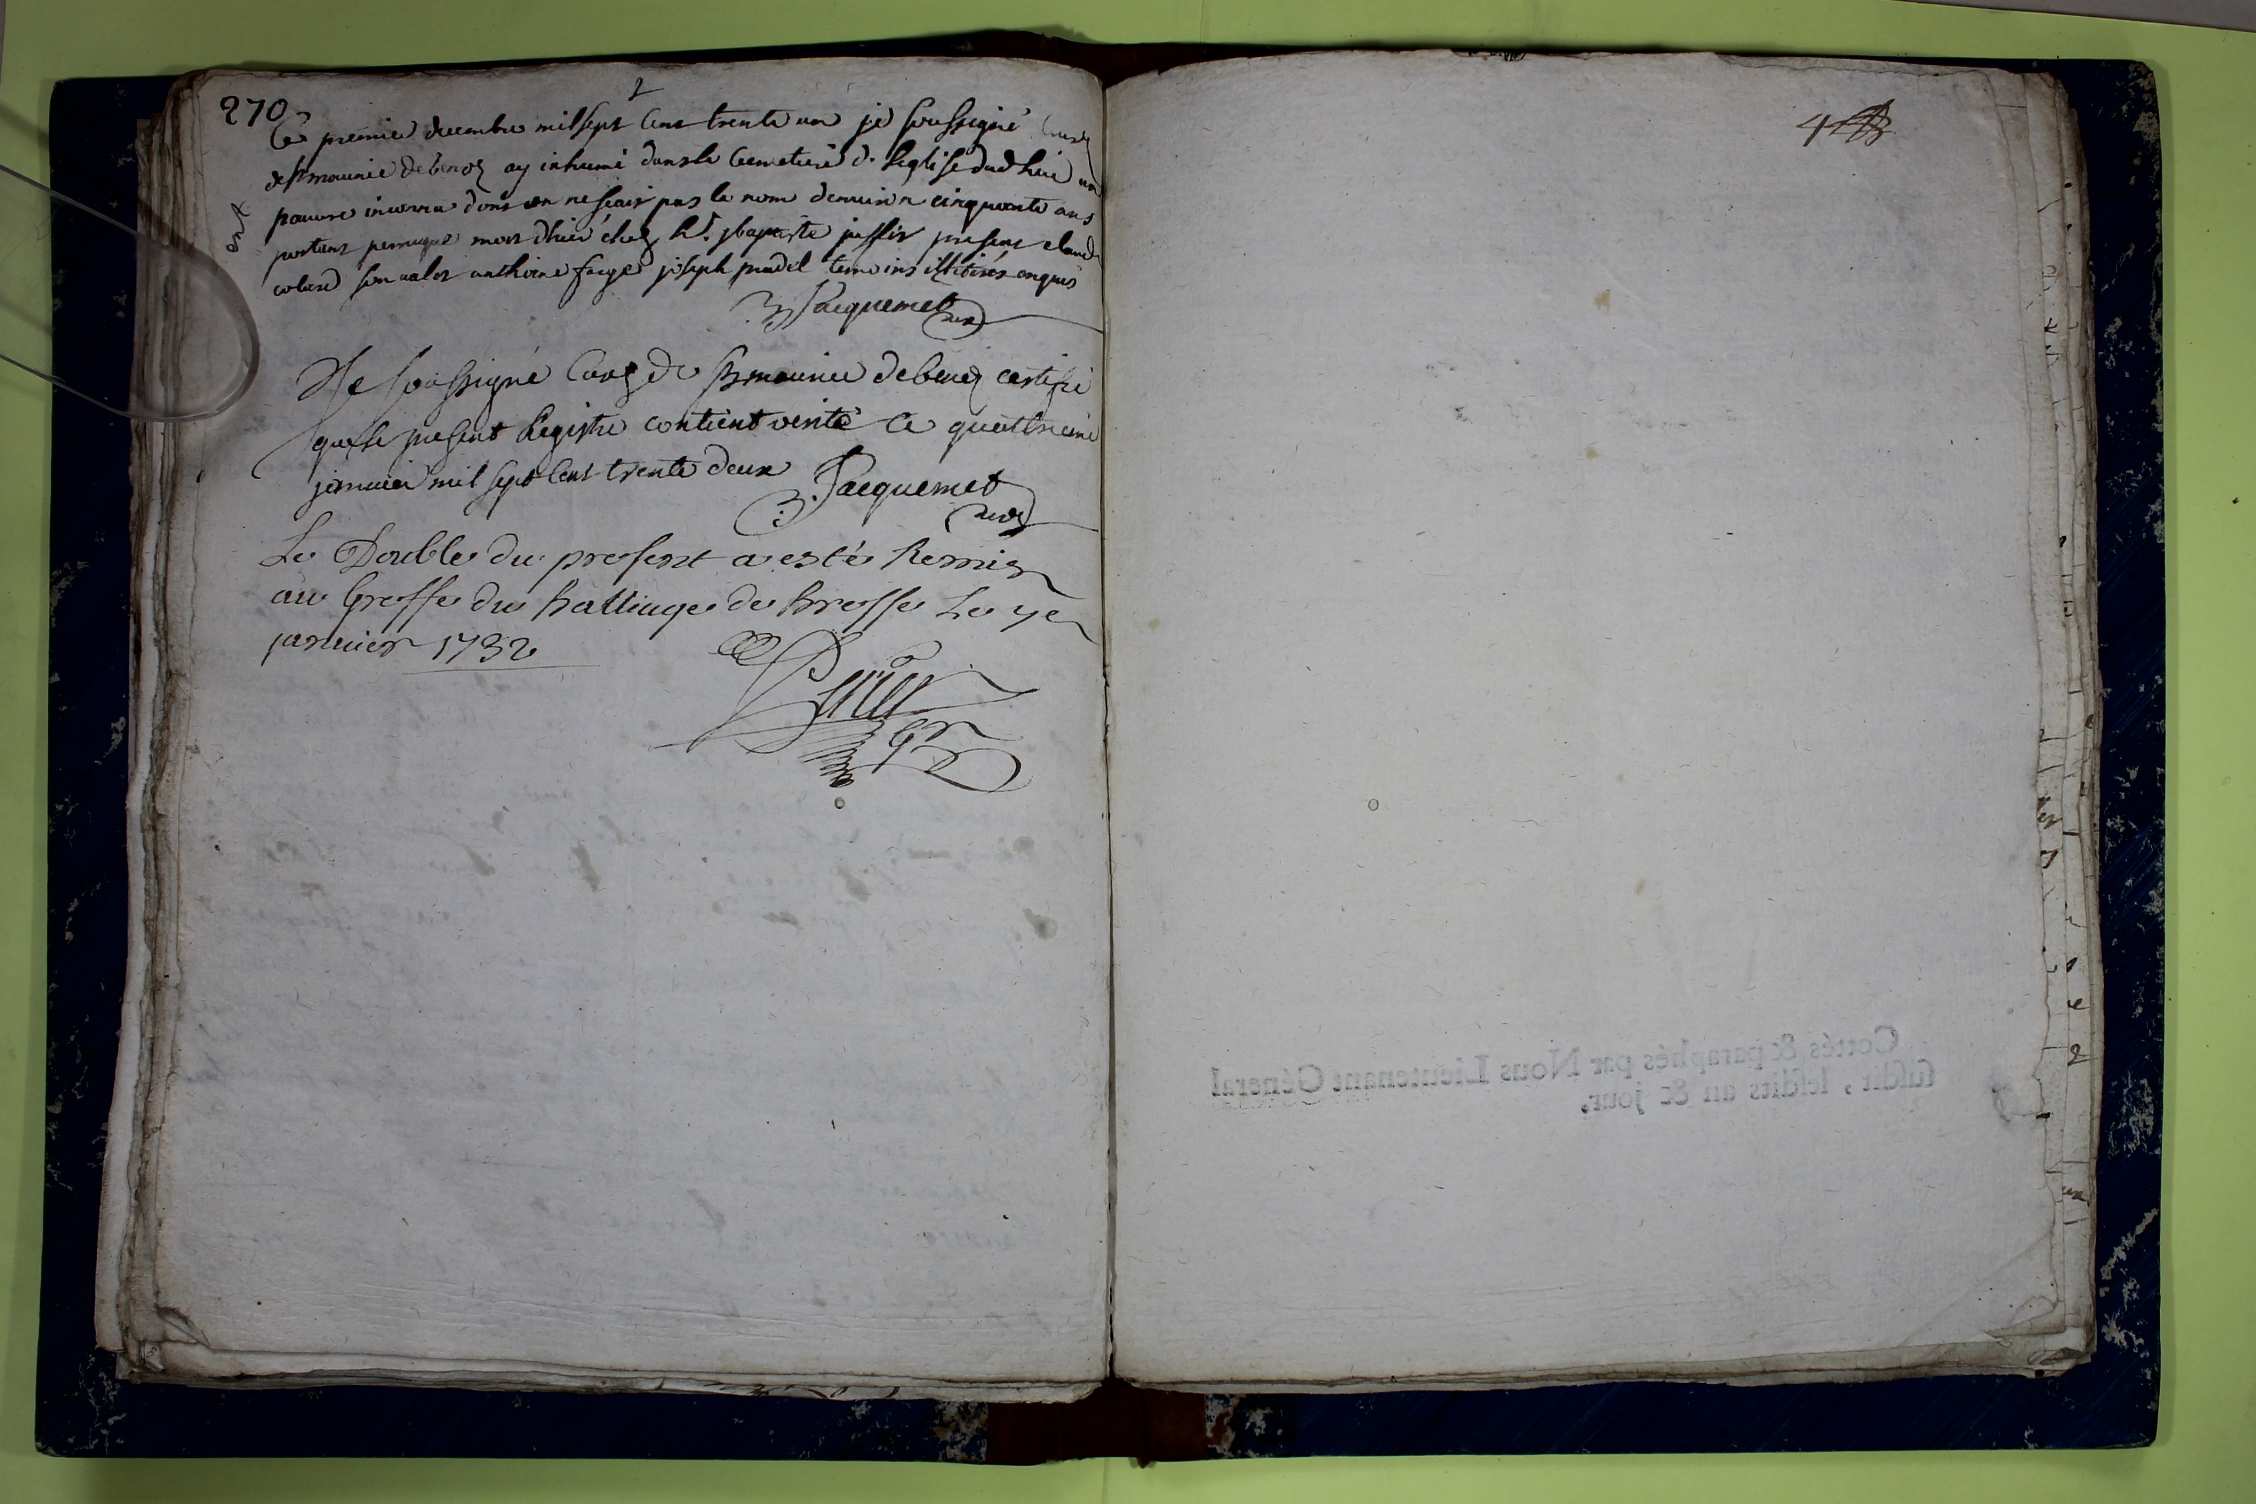 270
2
Ce premier decembre mil sept cent trente un je soussigné Curé
de st maurice de benoz ay inhumé dans le Cemetiere de leglise dud lieu un
pauvre inconnu dont on ne sçait pas le nom denviron cinquante ans
portant perruque mort dhier chez hr. jbaptiste present claude
colard son valet anthoine farge joseph pradel temoins illitirés enquis
ent
Jacquemet curé
Je soussigné Curé de St maurice de benoz certifie
que le present Registre contient verité ce quattrieme
januier mil sept cent trente deux Jacquemet
curé
Le Double du present a esté Remis
au Greffe du balliage de bresse Le 7e
januier 1732
4
Cottés & paraphés par Nous Lieutenant Général
susdit, lesdits an & jour.